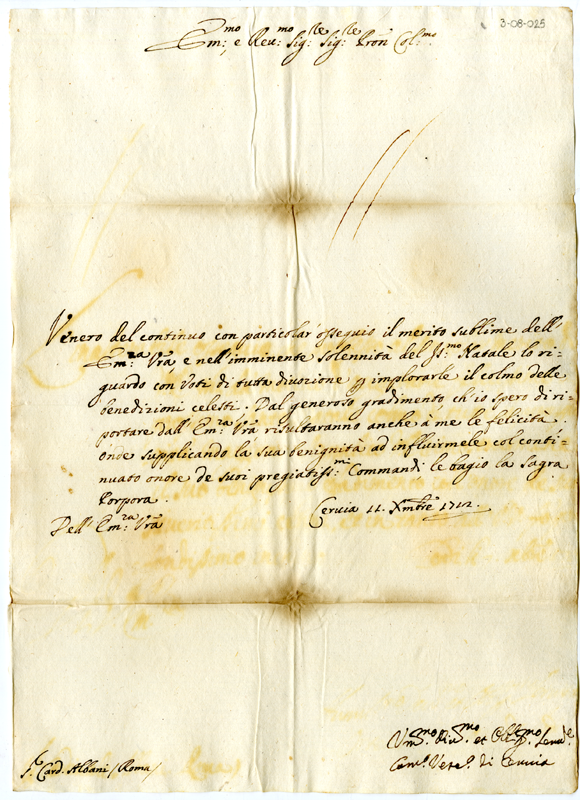 3-08-025
Em:mo e Reu:mo Sig:re Sig:re Pron Col:mo
Venero del continuo con particolar' osseguio il merito sublime dell'
Em:ra Vrã, e nell'imminente solennità del Ss:mo Natale lo ri-
guardo con Voti di tutta divozione p implorarle il colmo delle
benedizioni celesti. Dal generoso gradimento, ch'io spero di ri-
portare dall'Em:ra Vrã risultaranno anche à me le felicità,
onde supplicando la sua benignità ad influirmele col conti-
nuato onore de suoi pregiatiss:mi Commandi le bagio la sagra
Porpora.
Cervia 11. Xmbre 1712.
Dell'Em:ra Vrã
Vm:mo Diu:mo et Obl:mo
S.r Card. Albani (Roma)
di Cervia